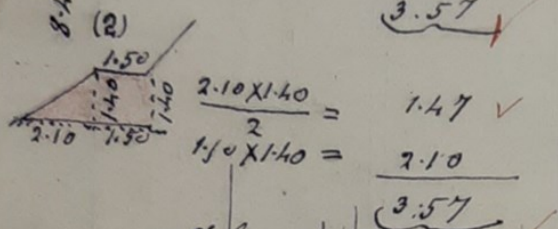 3.57
8.4
(2)
1.50
1.40
1.40
2.10
1.50
2.10 X 1.40 / 2 = 1.47 ✓
1.50 X 1.40 = 2.10
3.57